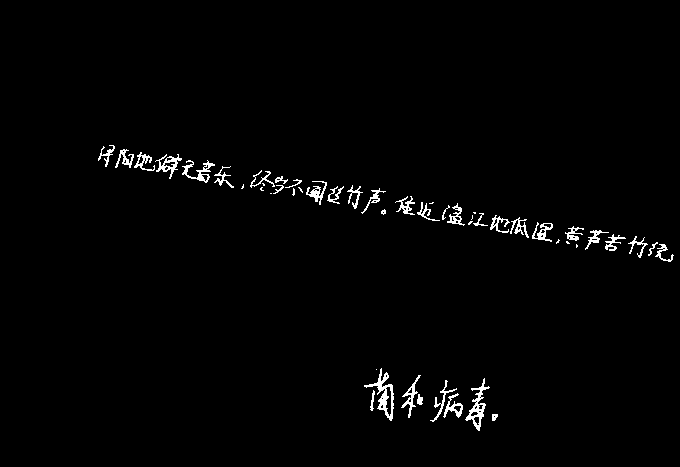 浔阳地僻无音乐，终岁不闻丝竹声。住近湓江地低湿，黄芦苦竹绕
菌和病毒。